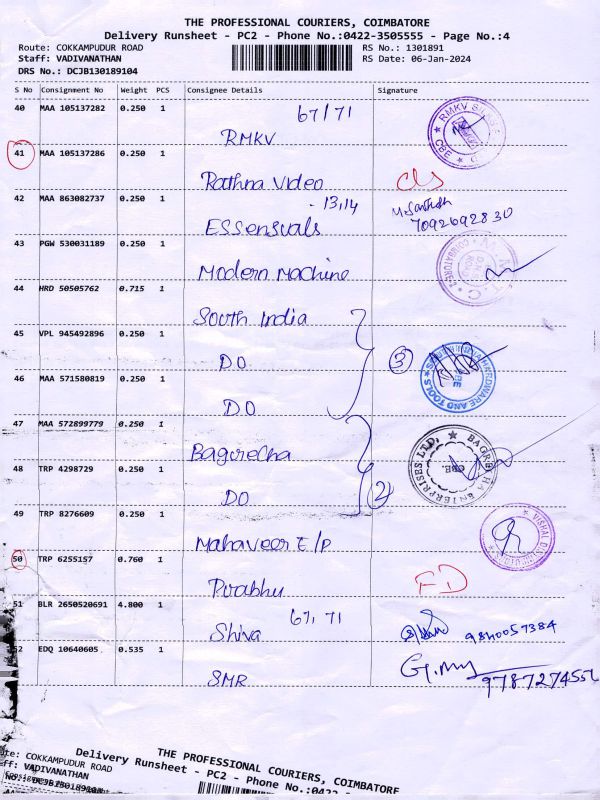 THE PROFESSIONAL COURIERS, COIMBATORE
Delivery Runsheet - PC2 - Phone No.:0422-3505555 - Page No.:4
Route: COKKAMPUDUR ROAD RS No.: 1301891
Staff: VADIVANATHAN RS Date: 06-Jan-2024
DRS No.: DCJB130189104
S No Consignment No Weight PCS Consignee Details Signature
40 MAA 105137282 0.250 1 67/71
RMKV
41 MAA 105137286 0.250 1
Rathna Video CLS
42 MAA 863082737 0.250 1 - 13,14
ESSensuals 7092692830
43 PGW 530031189 0.250 1
Modern Machine
44 HRD 50505762 0.715 1
South India
45 VPL 945492896 0.250 1
DO 3
46 MAA 571580819 0.250 1
DO
47 MAA 572899779 0.250 1
Bagrecha
48 TRP 4298729 0.250 1
DO 2
49 TRP 8276609 0.250 1
Mahaveer E/P
50 TRP 6255157 0.760 1
Prabhu FD
51 BLR 2650520691 4.800 1 67, 71
Shiva 9840057384
52 EDQ 10640605 0.535 1
SMR 9787274552
THE PROFESSIONAL COURIERS, COIMBATORE
Delivery Runsheet - PC2 - Phone No.:0422-
COKKAMPUDUR ROAD
VADIVANATHAN